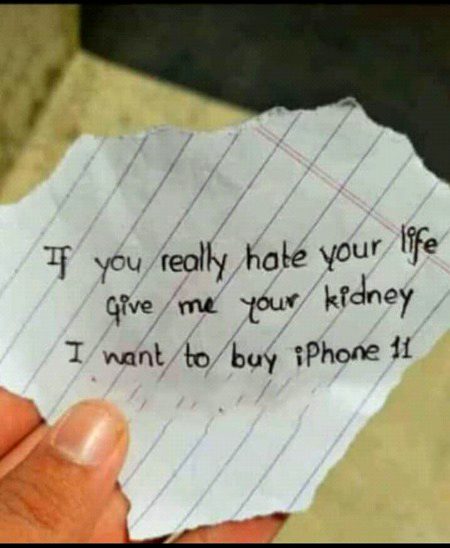 If you really hate your life
Give me your kidney
I want to buy iPhone 11